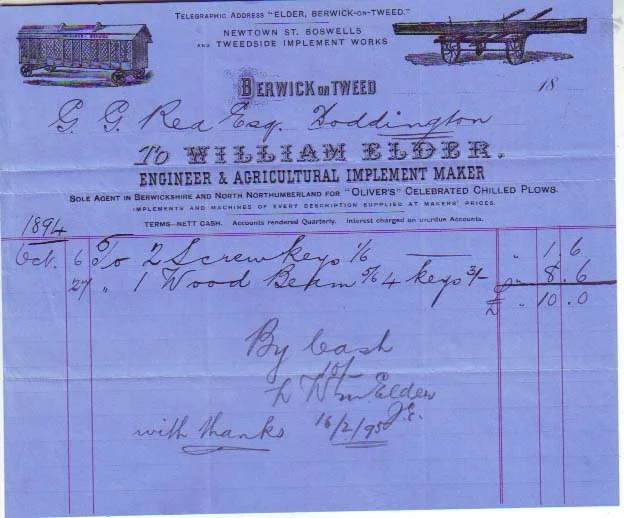 TELEGRAPHIC ADDRESS "ELDER, BERWICK-ON-TWEED."
NEWTOWN ST. BOSWELLS
AND TWEEDSIDE IMPLEMENT WORKS
BERWICK ON TWEED
18
G. G. Rea Esq. Doddington
To WILLIAM ELDER,
ENGINEER & AGRICULTURAL IMPLEMENT MAKER
SOLE AGENT IN BERWICKSHIRE AND NORTH NORTHUMBERLAND FOR "OLIVER'S" CELEBRATED CHILLED PLOWS.
IMPLEMENTS AND MACHINES OF EVERY DESCRIPTION SUPPLIED AT MAKERS' PRICES.
TERMS—NETT CASH. Accounts rendered Quarterly. Interest charged on overdue Accounts.
1894
Oct. 6 To 2 Screwkeys 1/6 " 1 . 6
27 " 1 Wood Beam 5/6 4 keys 3/- " 8 . 6
£ " 10 . 0
By Cash
10/-
Wm Elder
J.E.
with thanks 16/2/95